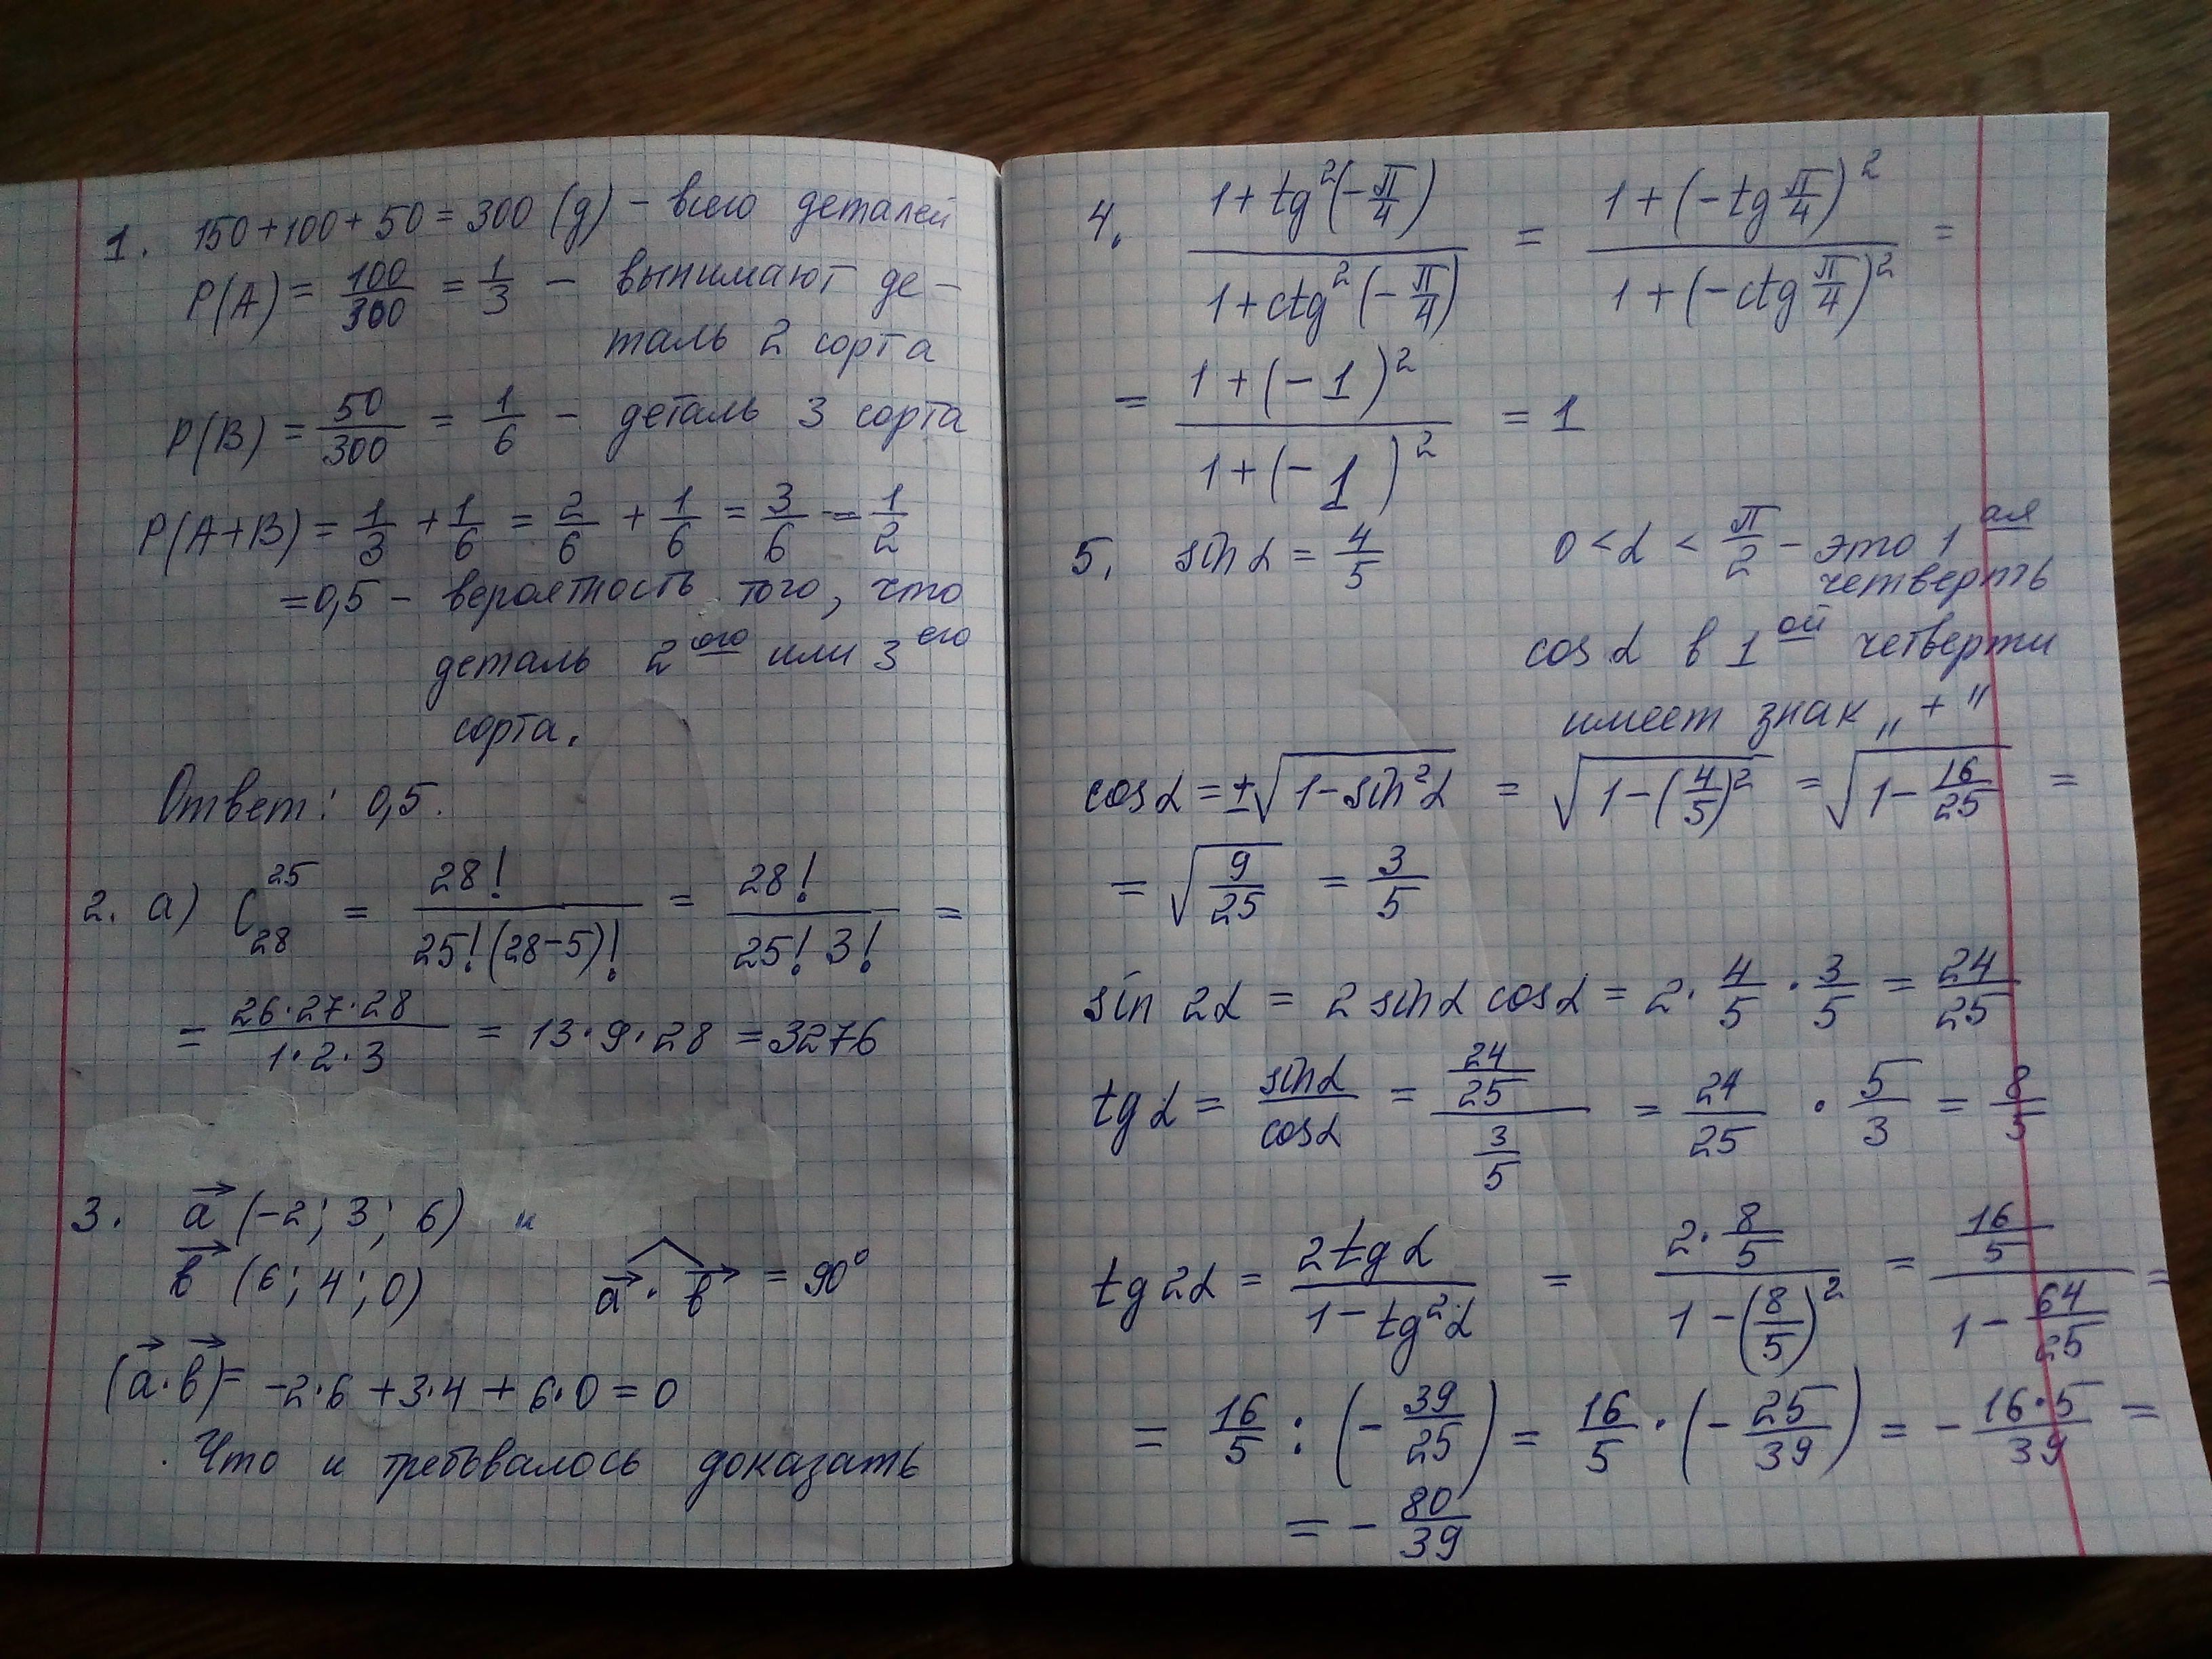 1. 150+100+50=300 (д) – всего деталей
P(A) = 100/300 = 1/3 – вынимают де-
таль 2 сорта
P(B) = 50/300 = 1/6 – деталь 3 сорта
P(A+B) = 1/3 + 1/6 = 2/6 + 1/6 = 3/6 = 1/2
=0,5 – вероятность того, что
деталь 2ого или 3его
сорта.
Ответ: 0,5.
2. а) C₂₈²⁵ = 28!/(25!(28-5)!) = 28!/(25! 3!) =
= (26·27·28)/(1·2·3) = 13·9·28 = 3276
3. a⃗ (-2; 3; 6) и
b⃗ (6; 4; 0) a⃗ · b⃗ = 90°
(a⃗·b⃗)= -2·6 +3·4 + 6·0 = 0
Что и требовалось доказать
4. (1+tg²(-π/4))/(1+ctg²(-π/4)) = (1+(-tg π/4)²)/(1+(-ctg π/4)²) =
= (1+(-1)²)/(1+(-1)²) = 1
5. sin α = 4/5 0 < α < π/2 – это 1ая
четверть
cos α в 1ой четверти
имеет знак „+"
cos α = ±√(1-sin²α) = √(1-(4/5)²) = √(1-16/25) =
= √(9/25) = 3/5
sin 2α = 2 sin α cos α = 2 · 4/5 · 3/5 = 24/25
tg α = sin α/cos α = (24/25)/(3/5) = 24/25 · 5/3 = 8/5
tg 2α = 2tg α/(1-tg²α) = (2·8/5)/(1-(8/5)²) = (16/5)/(1-64/25) =
= 16/5 : (-39/25) = 16/5 · (-25/39) = - 16·5/39 =
= - 80/39